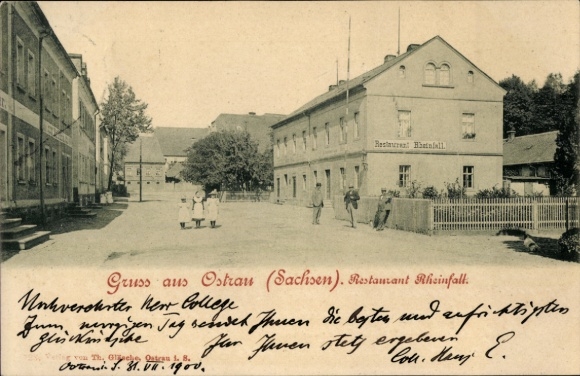 Restaurant Rheinfall.
Gruss aus Ostrau (Sachsen). Restaurant Rheinfall.
Hochverehrter Herr College
Zum Tag sendet Ihnen die besten und aufrichtigsten
Glückwünsche Ihr Ihnen stets ergebener
Coll. E.
Verlag von Th. Glöscke, Ostrau i. S.
Ostrau i. S. 31. VII. 1900.